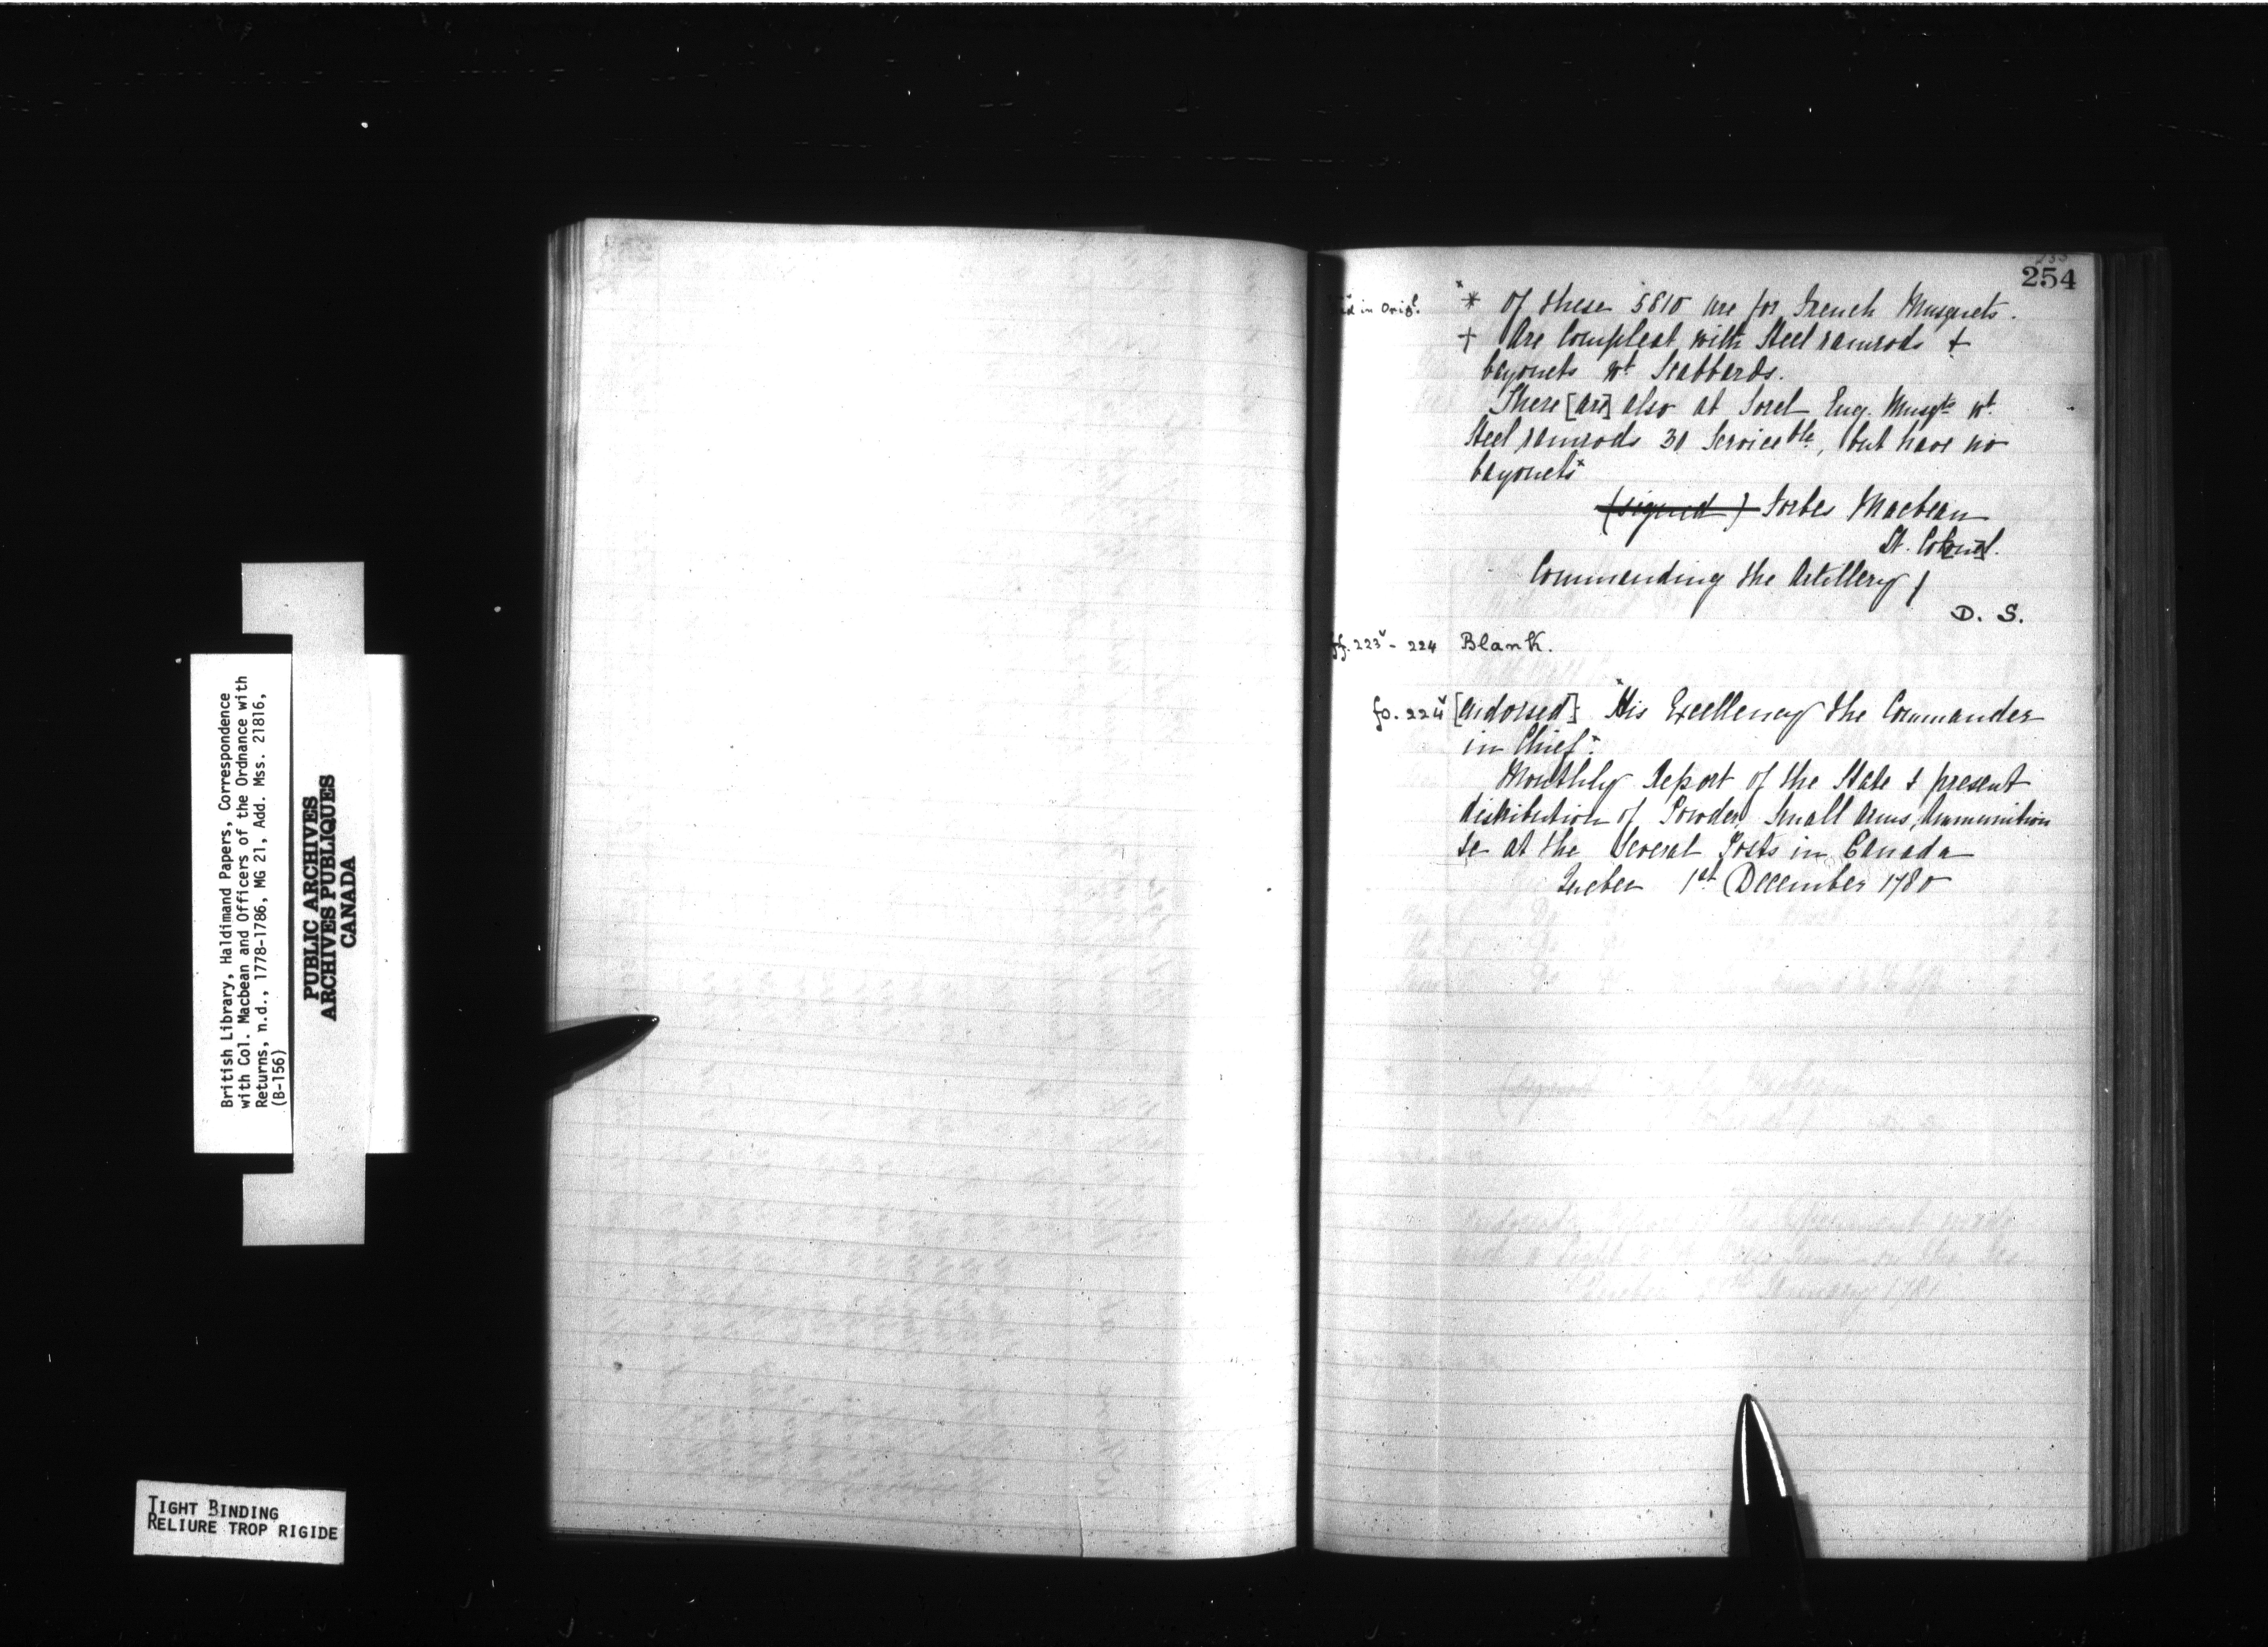 British Library, Haldimand Papers, Correspondence
with Col. Macbean and Officers of the Ordnance with
Returns, n.d., 1778-1786, MG 21, Add. Mss. 21816,
(B-156)
PUBLIC ARCHIVES
ARCHIVES PUBLIQUES
CANADA
TIGHT BINDING
RELIURE TROP RIGIDE
254
in Origl.
"* Of these 5810 are for French Musquets.
+ Are Compleat with Steel ramrods &
bayonets wt. Scabbards.
There [are] also at Sorel Eng. Musqts. wt.
Steel ramrods 30 Serviceble, but have no
bayonets"
(signed) Forbes Macbean
Lt. Colonel.
Commanding the Artillery}
D. S.
ff. 223v - 224 Blank.
fo. 224v [Endorsed] "His Excellency the Commander
in Chief".
Monthly Report of the State & present
distribution of Powder, Small Arms, Ammunition
&c at the Several Posts in Canada
Quebec 1st December 1780